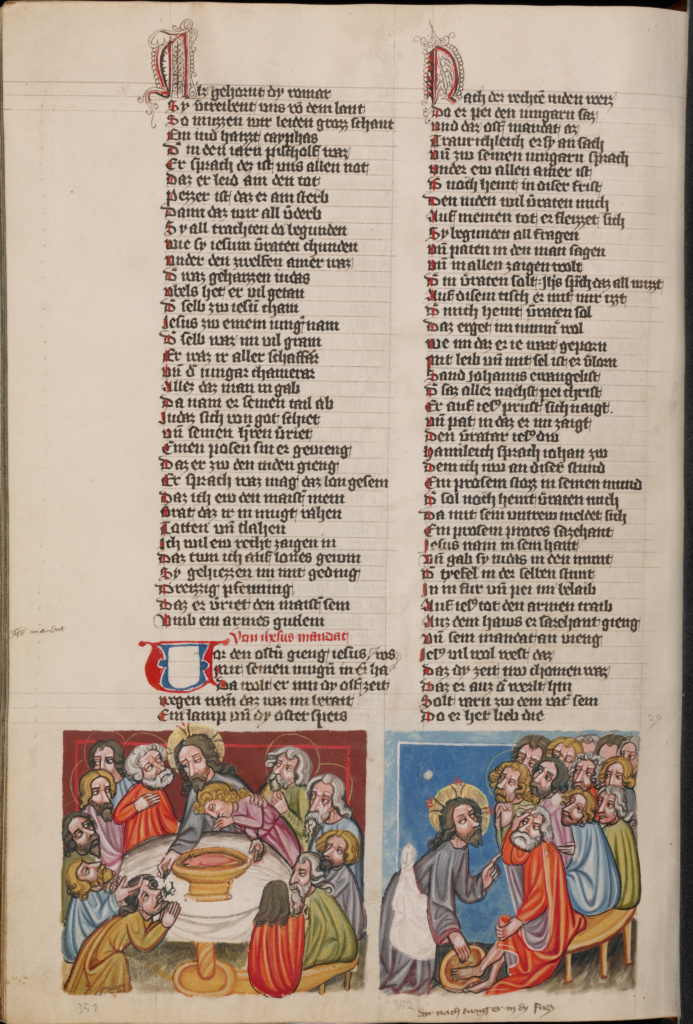 Als gehornt dy romar
Sy vtreibent vns vo dem lant
So muezzen wir leiden grozz schant
Ein iud hayzt cayphas
D in den iarn pischolf waz
Er sprach dez ist vns allen not
Daz er leid am den tot
Pezzer ist daz er am sterb
Dann daz wir all vderb
Sy all trachten do begunden
Wie sy iesum vraten chunden
Vnder den zwelfen amer waz
D waz gehazzen iudas
Vbels het er vil getan
D selb zw iesu cham
Iesus zw einem iung nam
D selb waz im vil gram
Er waz ir aller schaffar
Vn d iungar chamerar
Allez daz man in gab
Da nam er seinen tail ab
Iudaz sich von got schiet
Vn seinen hren vriet
Einen posen sin er gewieng
Daz er zw den iuden gieng
Er sprach waz mag daz lon gesein
Daz ich ew den maist mein
Vrat daz ir in mugt vahen
Totten vn slahen
Ich wil ew recht zaigen in
Daz twn ich auf lones gewin
Sy gehiezzen im mit geding
Dreizzig pfenning
Daz er vriet den maist sein
Vmb ein armes gutlein
Von ihesus mandat
Vor den osten gieng iesus, ws
mit seinen iung in ha
Da wolt er mit dy ostzeit
wegen wan daz waz im berait
Ein lamp vn dy oster speis
Nach der recht iuden weis
Do er pei den iungarn saz
Vnd daz ost mandat az
Traurichleich er sy an sach
Vn zw seinen iungarn sprach
Vnder ew allen amer ist
D noch heint in diser frist
Den iuden wil vraten mich
Auf meinen tot er fleizzet sich
Sy begunden all fragen
Vn paten in den man sagen
Vn in allen zaigen wolt
D in vraten solt
Auf disem tisch er mit mir izzt
D mich heint vraten sol
Daz erget im nimm wol
We im daz er ie wart geporn
Mit leib vn mit sel ist er vlorn
Sand iohannis ewangelist
D saz aller nachst pei christ
Er auf iesu prust sich naigt
Vn pat in daz er im zaigt
Den vratar iesu do
Haimleich sprach iohan zw
Dem ich nw an diser stund
Ein prosem stozz in seinen mund
D sol noch heint vraten mich
Da mit sein vntrew meldet sich
Ein prosem protes sazehant
Iesus nam in sein hant
Vn gab sy iudas in den munt
D tiefel in der selben stunt
In in fur vn pei im belaib
Auf iesu tot den armen traib
Auz dem haws er sazehant gieng
Vn sein mandat an vieng
Iesu vil wol west daz
Daz dy zeit nw chomen waz
Daz er auz d werlt hin
Solt varn zw dem vat sein
Do er het lieb die
29
351
352
dar nach twug er in dy fuezz